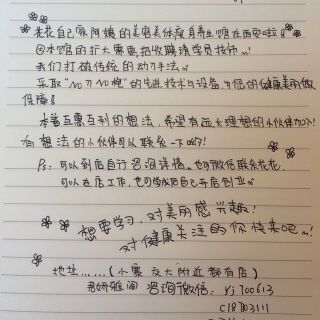 花花自己家阿姨的美容美体瘦身养生馆在西安啦!
因本馆的扩大需要,招收聘请学员技师~!
我们打破传统的动刀手法~
采取"No刀No枪"的先进技术与设备,为您的健康美丽做
保障!
本着互惠互利的想法,希望有远大理想的小伙伴加入!
有想法的小伙伴可以联系一下她们!
Ps: 可以到店自行咨询详情~也可微信联系花花,
可以在店工作,也可学成后自己开店创业~
想要学习,对美丽感兴趣!
对健康关注的你快来吧~!
地址……(小寨 交大附近都有店)
妍雅阁 咨询微信: yj700613
c18703111